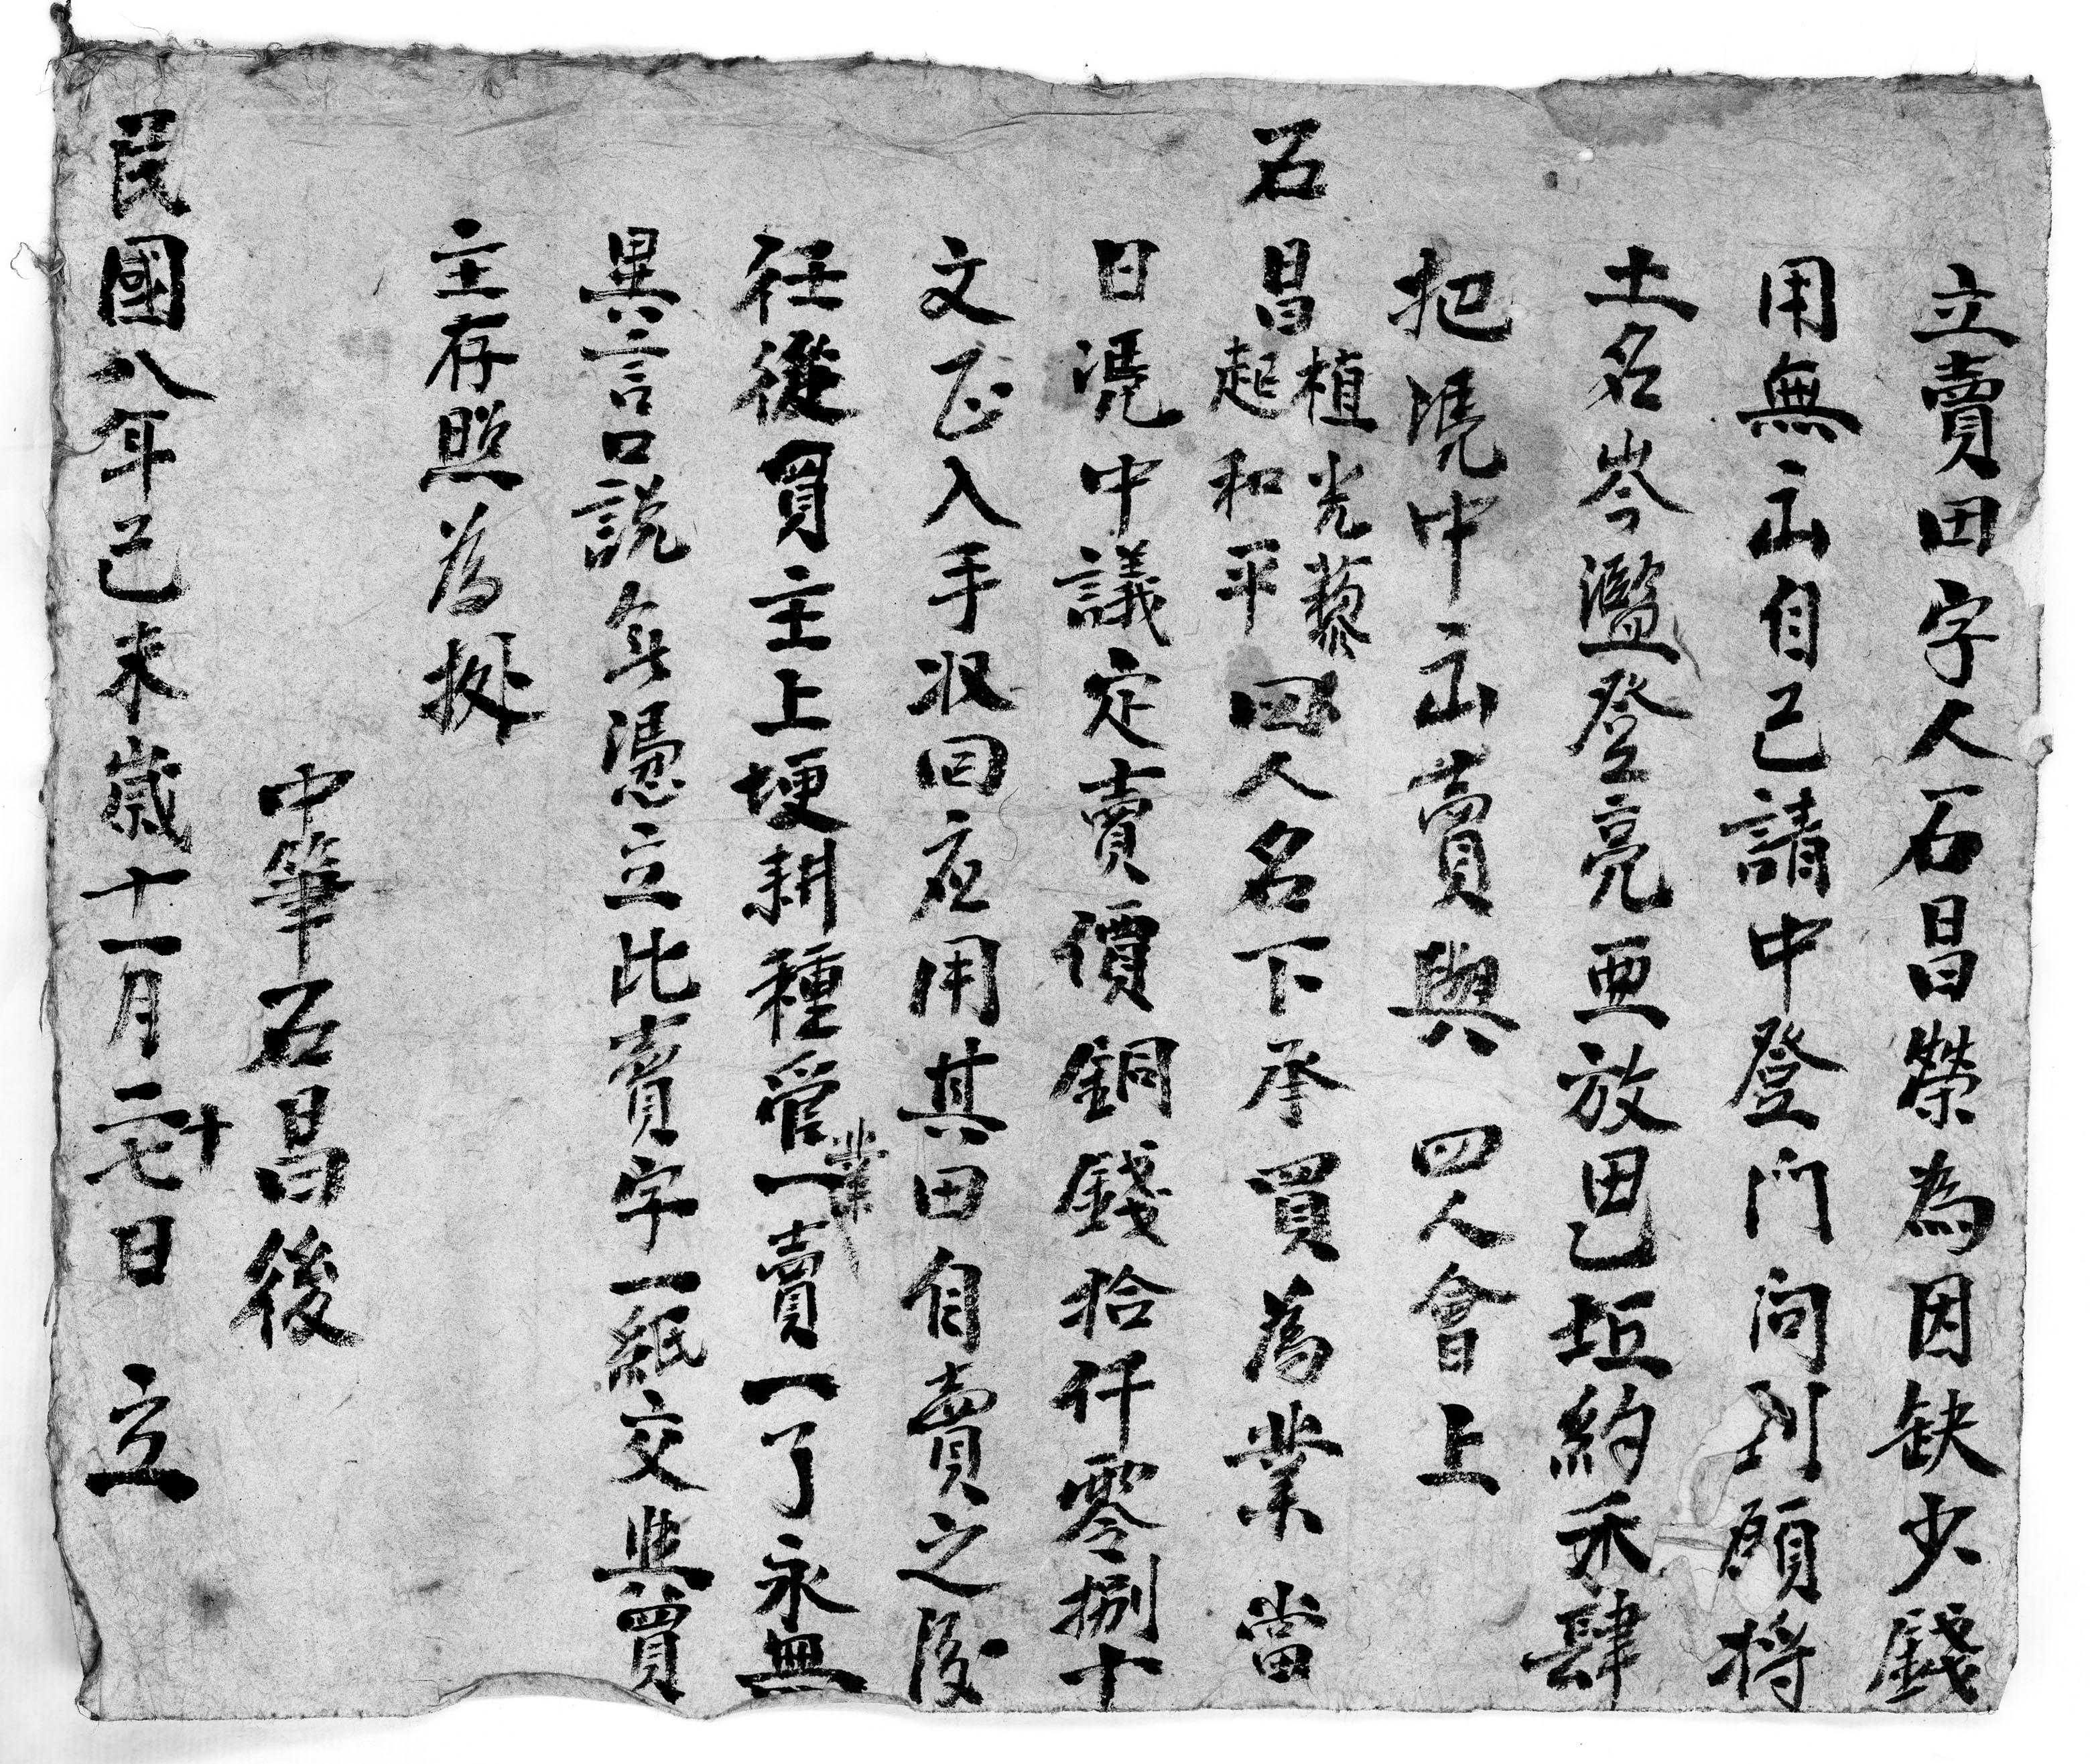 立賣田字人石昌榮為因缺少錢
用無𠙖自己請中登門问到願將
土名岑濫登亮亜放田乜坵約禾肆
把慿中𠙖賣與　四人會上
石昌植起光和藜平四人名下承買為業當
日慿中議定賣價銅錢拾仟零捌十
文正入手收回应用其田自賣之後
任從買主上埂耕種管業一賣一了永無
異言口説無憑立此賣字一紙交與買
主存照為拠
中筆石昌後
民國八年己未歲十一月二十七日　立